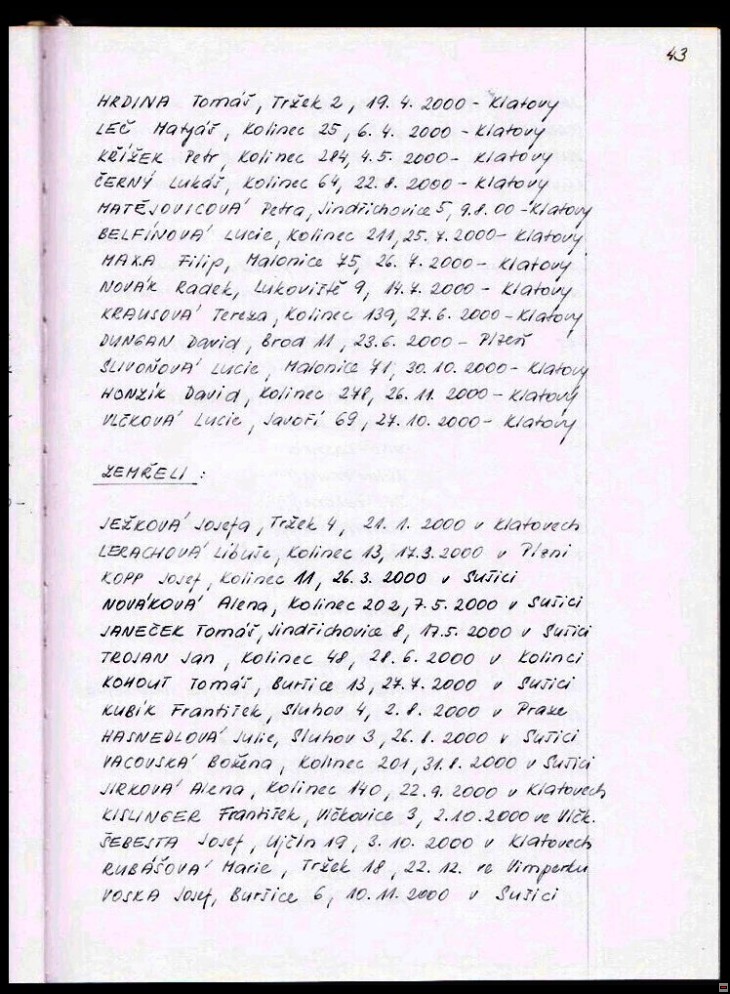 43
HRDINA Tomáš, Tržek 2, 19. 4. 2000 - Klatovy
LEČ Matyáš, Kolinec 25, 6. 4. 2000 - Klatovy
KŘÍŽEK Petr, Kolinec 284, 4. 5. 2000 - Klatovy
ČERNÝ Lukáš, Kolinec 64, 22. 8. 2000 - Klatovy
MATĚJOVICOVÁ Petra, Jindřichovice 5, 9.8. 00 - Klatovy
BELFÍNOVÁ Lucie, Kolinec 211, 25. 7. 2000 - Klatovy
MAXA Filip, Malonice 75, 26. 7. 2000 - Klatovy
NOVÁK Radek, Lukoviště 9, 14. 7. 2000 - Klatovy
KRAUSOVÁ Tereza, Kolinec 139, 27. 6. 2000 - Klatovy
DUNGAN David, Brod 11, 23. 6. 2000 - Plzeň
SLIVOŇOVÁ Lucie, Malonice 71, 30. 10. 2000 - Klatovy
HONZÍK David, Kolinec 278, 26. 11. 2000 - Klatovy
VLČKOVÁ Lucie, Javoří 69, 27. 10. 2000 - Klatovy
ZEMŘELI :
JEŽKOVÁ Josefa, Tržek 4, 21. 1. 2000 v Klatovech
LERACHOVÁ Libuše, Kolinec 13, 17. 3. 2000 v Plzni
KOPP Josef, Kolinec 11, 26. 3. 2000 v Sušici
NOVÁKOVÁ Alena, Kolinec 202, 7. 5. 2000 v Sušici
JANEČEK Tomáš, Jindřichovice 8, 17. 5. 2000 v Sušici
TROJAN Jan, Kolinec 48, 28. 6. 2000 v Kolinci
KOHOUT Tomáš, Buršice 13, 27. 7. 2000 v Sušici
KUBÍK František, Sluhov 4, 2. 8. 2000 v Praze
HASNEDLOVÁ Julie, Sluhov 3, 26. 8. 2000 v Sušici
VACOVSKÁ Božena, Kolinec 201, 31. 8. 2000 v Sušici
JIRKOVÁ Alena, Kolinec 140, 22. 9. 2000 v Klatovech
KISLINGER František, Vlčkovice 3, 2. 10. 2000 ve Vlčk.
ŠEBESTA Josef, Ujčín 19, 3. 10. 2000 v Klatovech
RUBÁŠOVÁ Marie, Tržek 18, 22. 12. ve Vimperku
VOSKA Josef, Buršice 6, 10. 11. 2000 v Sušici